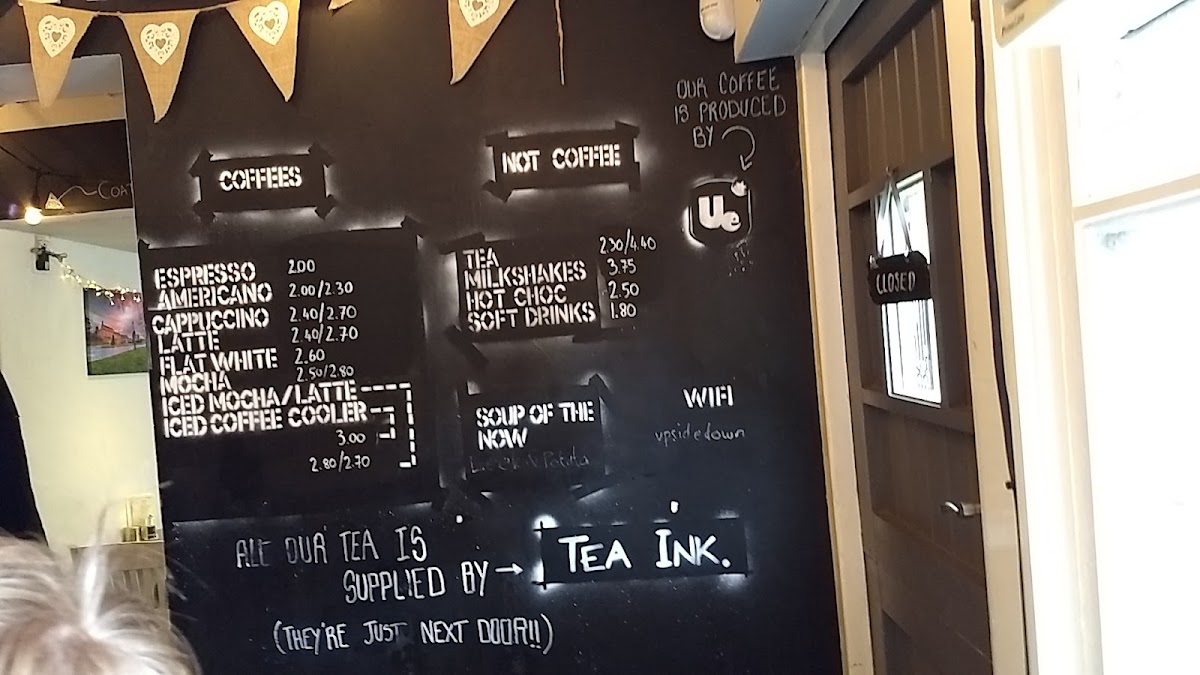 OUR COFFEE
IS PRODUCED
BY
Ue
COFFEES
ESPRESSO 2.00
AMERICANO 2.00/2.30
CAPPUCCINO 2.40/2.70
LATTE 2.40/2.70
FLAT WHITE 2.60
MOCHA 2.50/2.80
ICED MOCHA/LATTE
ICED COFFEE COOLER
3.00
2.80/2.70
NOT COFFEE
TEA 2.30/4.40
MILKSHAKES 3.75
HOT CHOC 2.50
SOFT DRINKS 1.80
SOUP OF THE
NOW
Leek & Potato
WIFI
upsidedown
CLOSED
ALL OUR TEA IS
SUPPLIED BY → TEA INK.
(THEY'RE JUST NEXT DOOR!!)